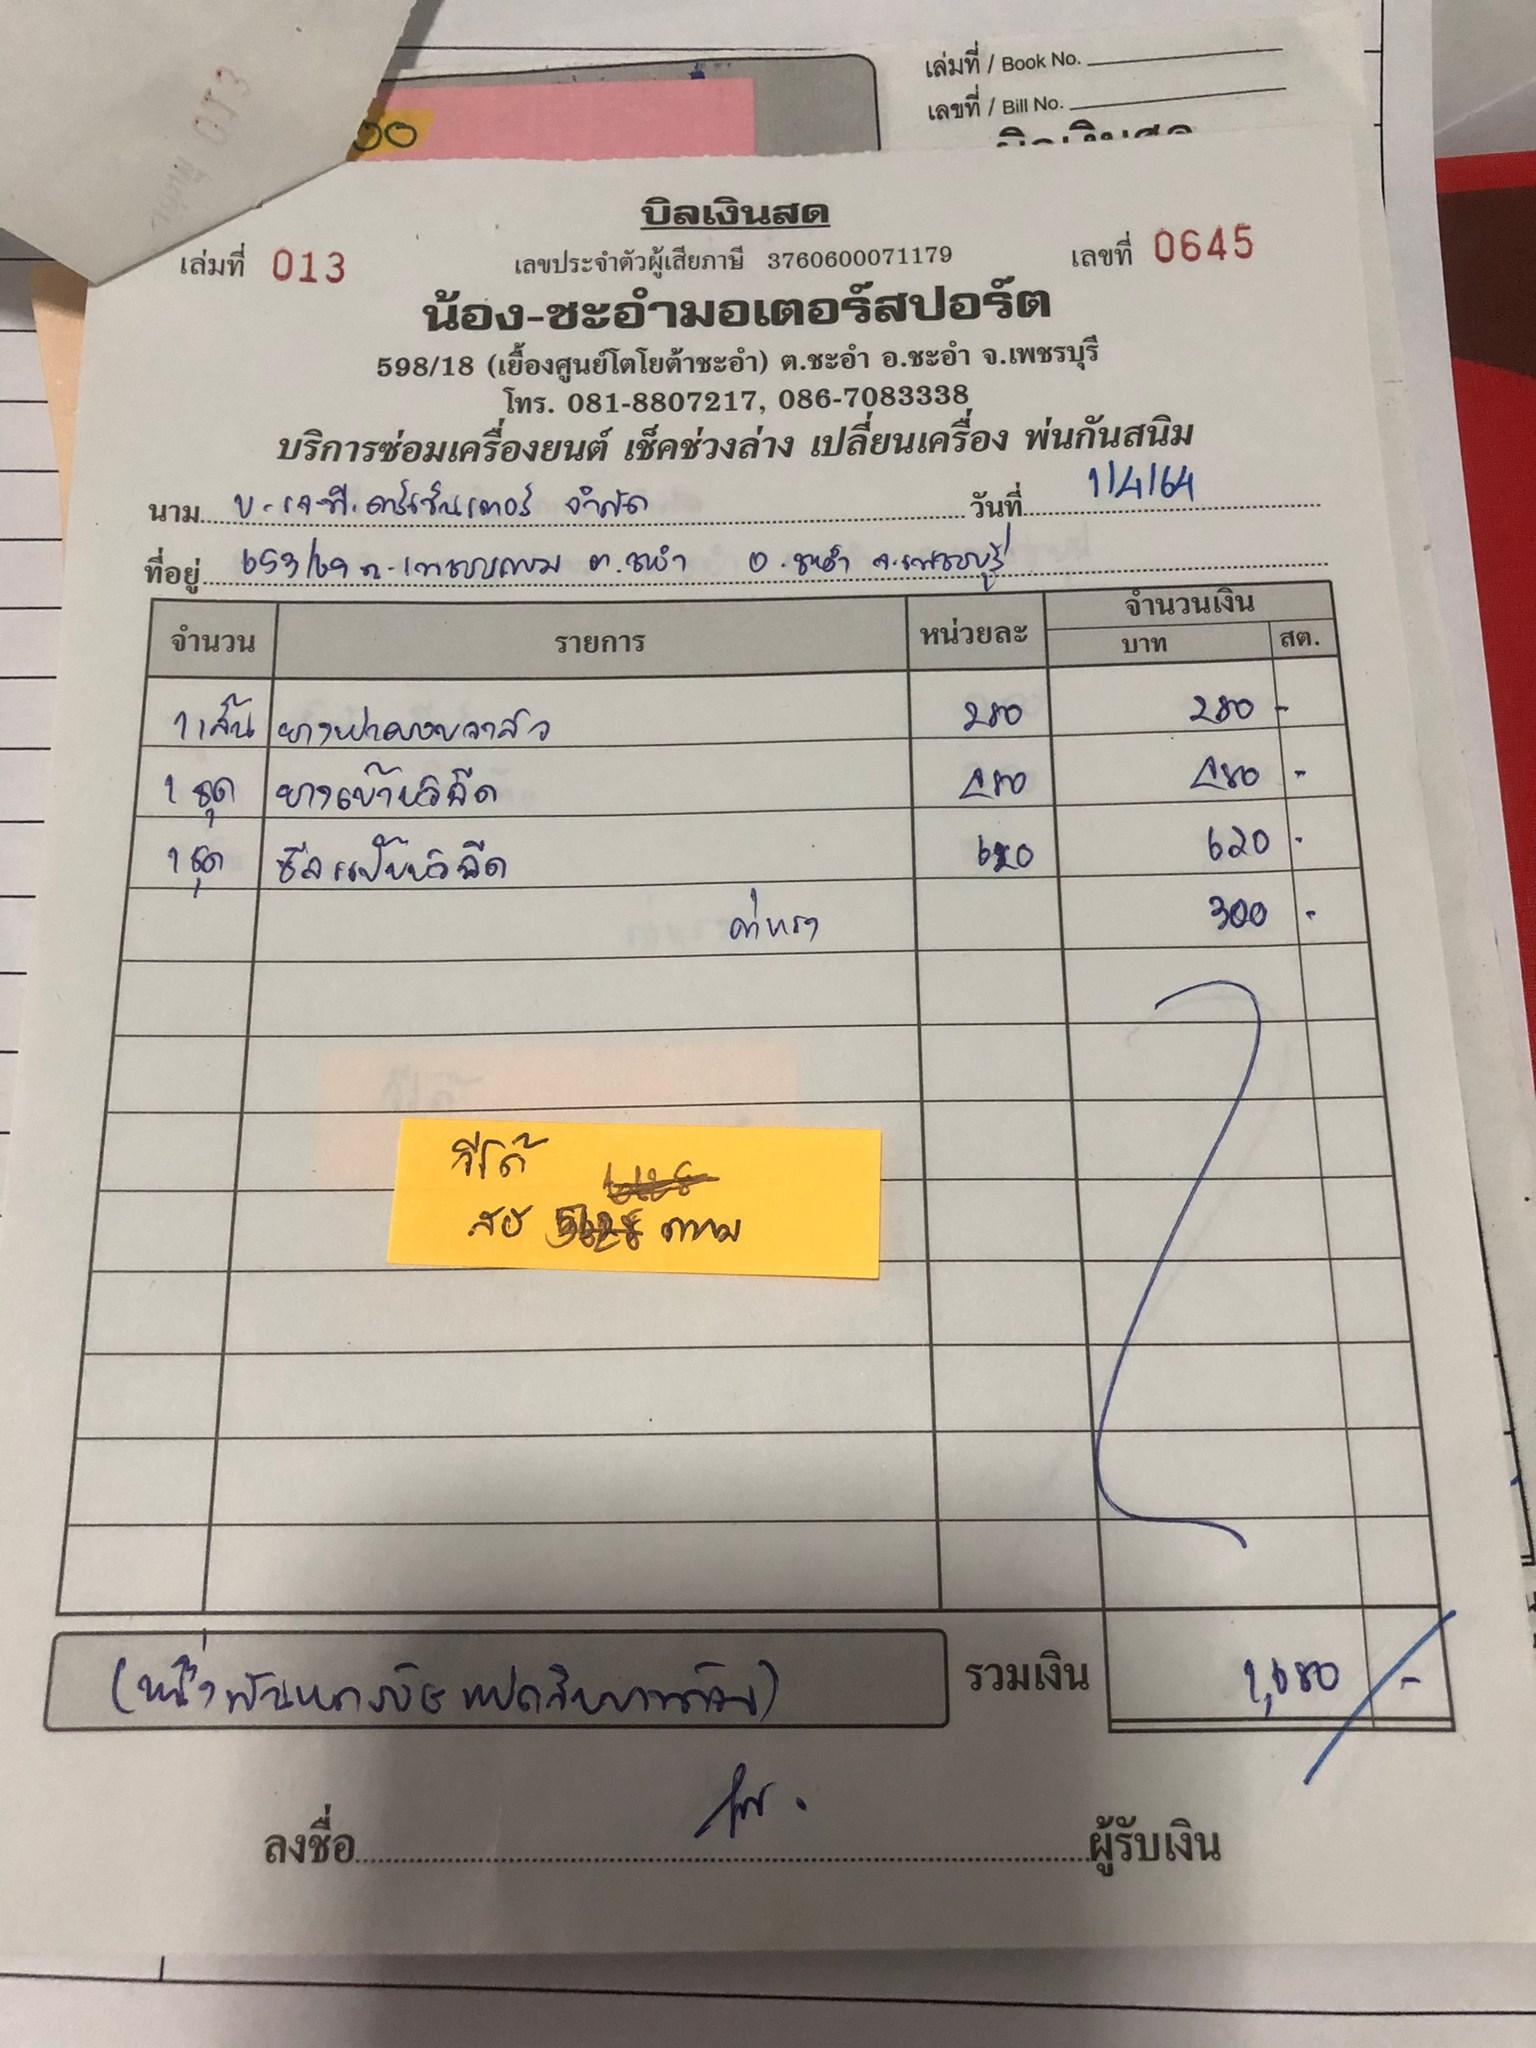 เล่มที่ / Book No.
เลขที่ / Bill No.
บิลเงินสด
บิลเงินสด
เล่มที่ 013
เลขประจำตัวผู้เสียภาษี 3760600071179
เลขที่ 0645
น้อง-ชะอำมอเตอร์สปอร์ต
598/18 (เยื้องศูนย์โตโยต้าชะอำ) ต.ชะอำ อ.ชะอำ จ.เพชรบุรี
โทร. 081-8807217, 086-7083338
บริการซ่อมเครื่องยนต์ เช็คช่วงล่าง เปลี่ยนเครื่อง พ่นกันสนิม
นาม บ.เจ.ที.คาร์เซ็นเตอร์ จำกัด วันที่ 1/4/64
ที่อยู่ 653/69 ถ.เพชรเกษม ต.ชะอำ อ.ชะอำ จ.เพชรบุรี
จำนวน รายการ หน่วยละ จำนวนเงิน
บาท สต.
1 เส้น ยางฝาครอบวาล์ว 280 280 -
1 ชุด ยางเบ้าหัวฉีด 480 480 -
1 ชุด ซีลแป๊บหัวฉีด 620 620 -
ค่าแรง 300 -
วีโก้
5628 กทม
(หนึ่งพันหกร้อยแปดสิบบาทถ้วน) รวมเงิน 1,680 -
ลงชื่อ ผู้รับเงิน